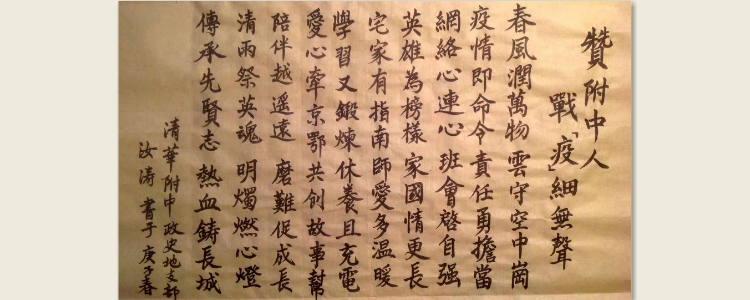 贊附中人
戰「疫」細無聲
春風潤萬物 雲守空中崗
疫情即命令 責任勇擔當
網絡心連心 班會啓自强
英雄為榜樣 家國情更長
宅家有指南 師愛多溫暖
學習又鍛煉 休養且充電
愛心牽京鄂 共創故事幫
陪伴越遥遠 磨難促成長
清雨祭英魂 明燭燃心燈
傳承先賢志 熱血鑄長城
清華附中政史地支部
汝涛 書于庚子春